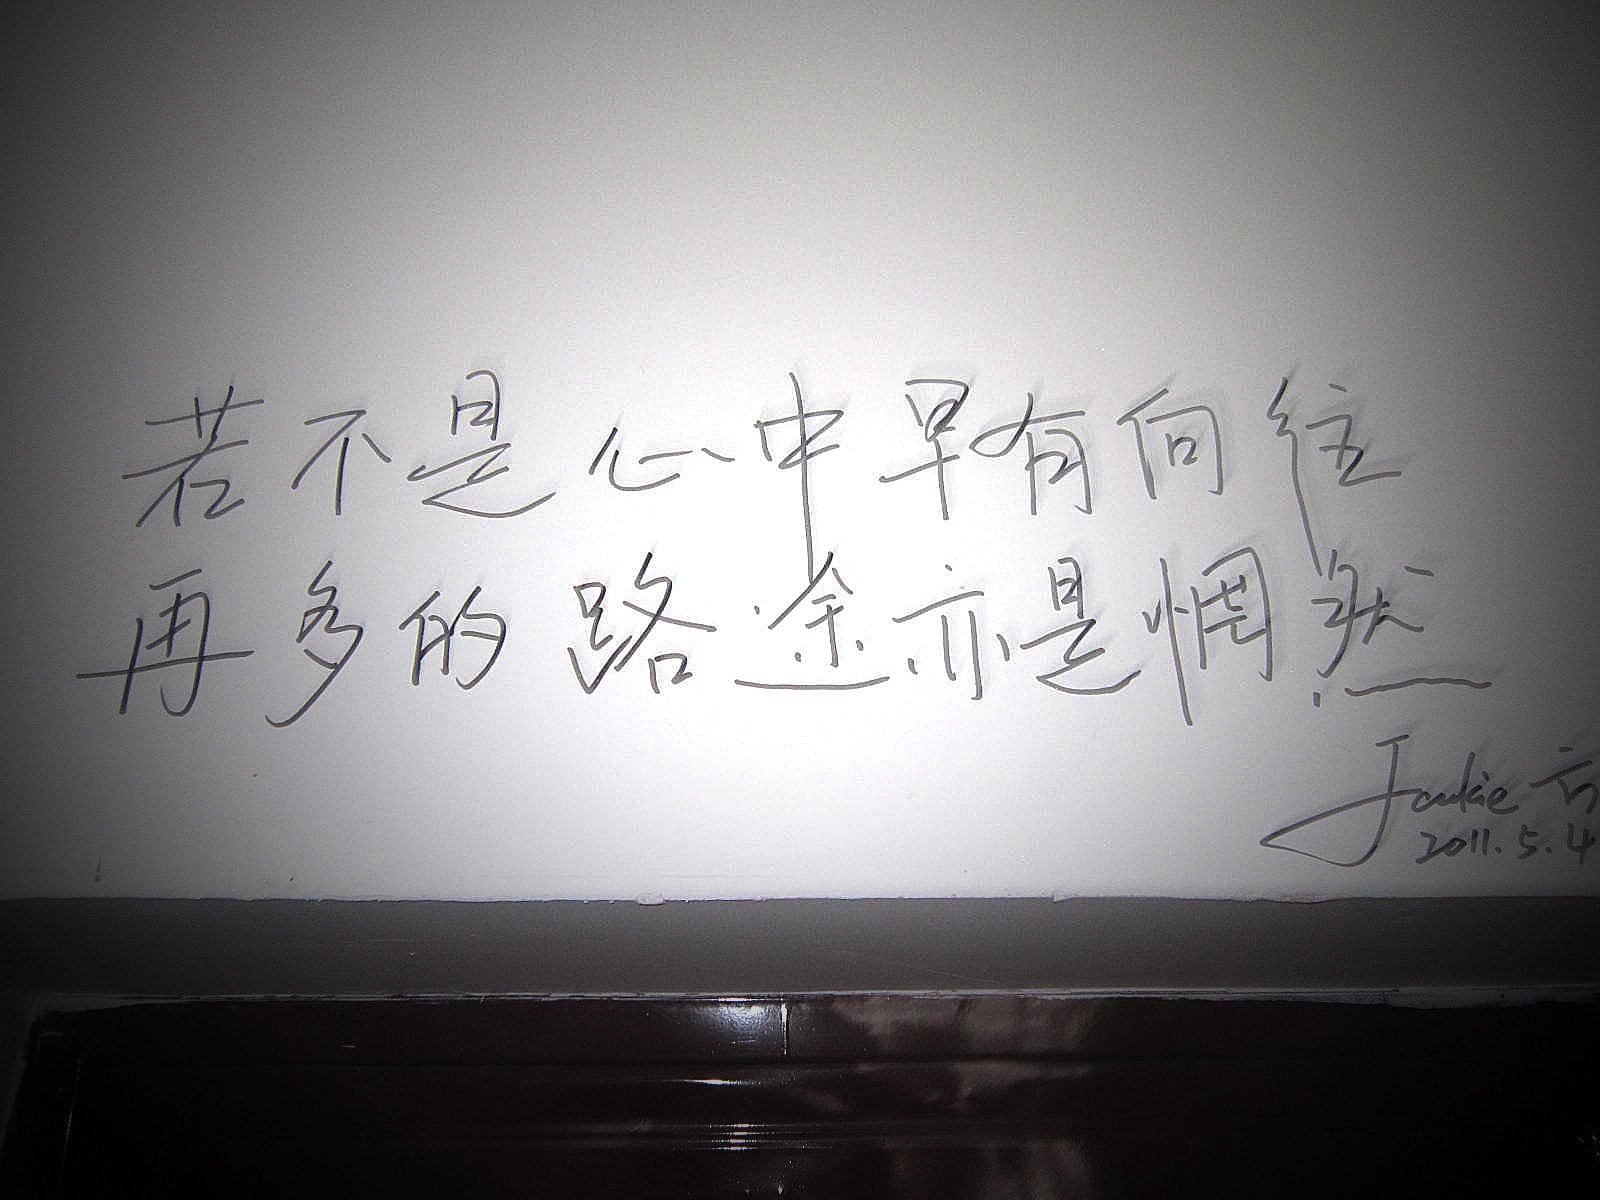 若不是心中早有向往
再多的路途亦是惘然
Jackie
2011.5.4